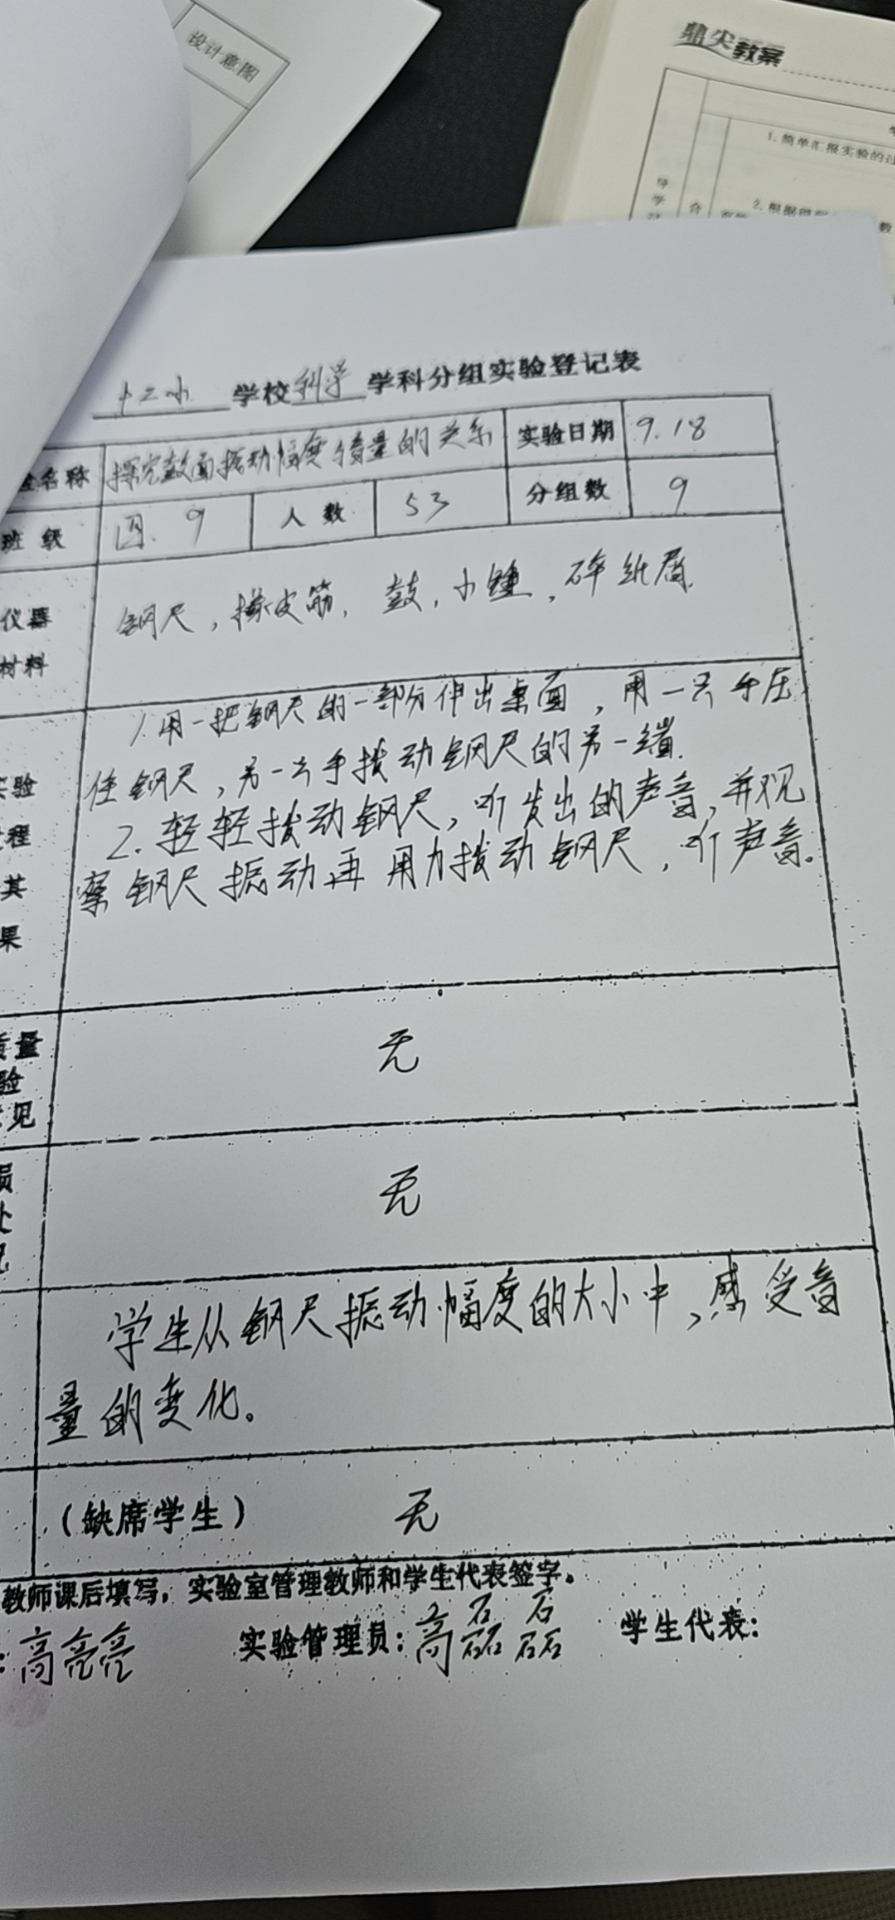 设计意图
鼎尖教案
1.简单汇报实验的过
导
学
合
十二小 学校 科学 学科分组实验登记表
验名称 探究鼓面振动幅度与音量的关系 实验日期 9.18
班级 四.9 人数 53 分组数 9
仪器
材料
钢尺,橡皮筋,鼓,小锤,碎纸屑.
1.用一把钢尺的一部分伸出桌面,用一只手压
住钢尺,另一只手拨动钢尺的另一端.
实验
2.轻轻拨动钢尺,听发出的声音,并观
程
察钢尺振动再用力拨动钢尺,听声音。
其
果
质量
验
见
无
损
处
无
学生从钢尺振动幅度的大小中,感受音
量的变化。
(缺席学生) 无
教师课后填写,实验室管理教师和学生代表签字。
:高亮亮 实验管理员:高磊磊 学生代表: